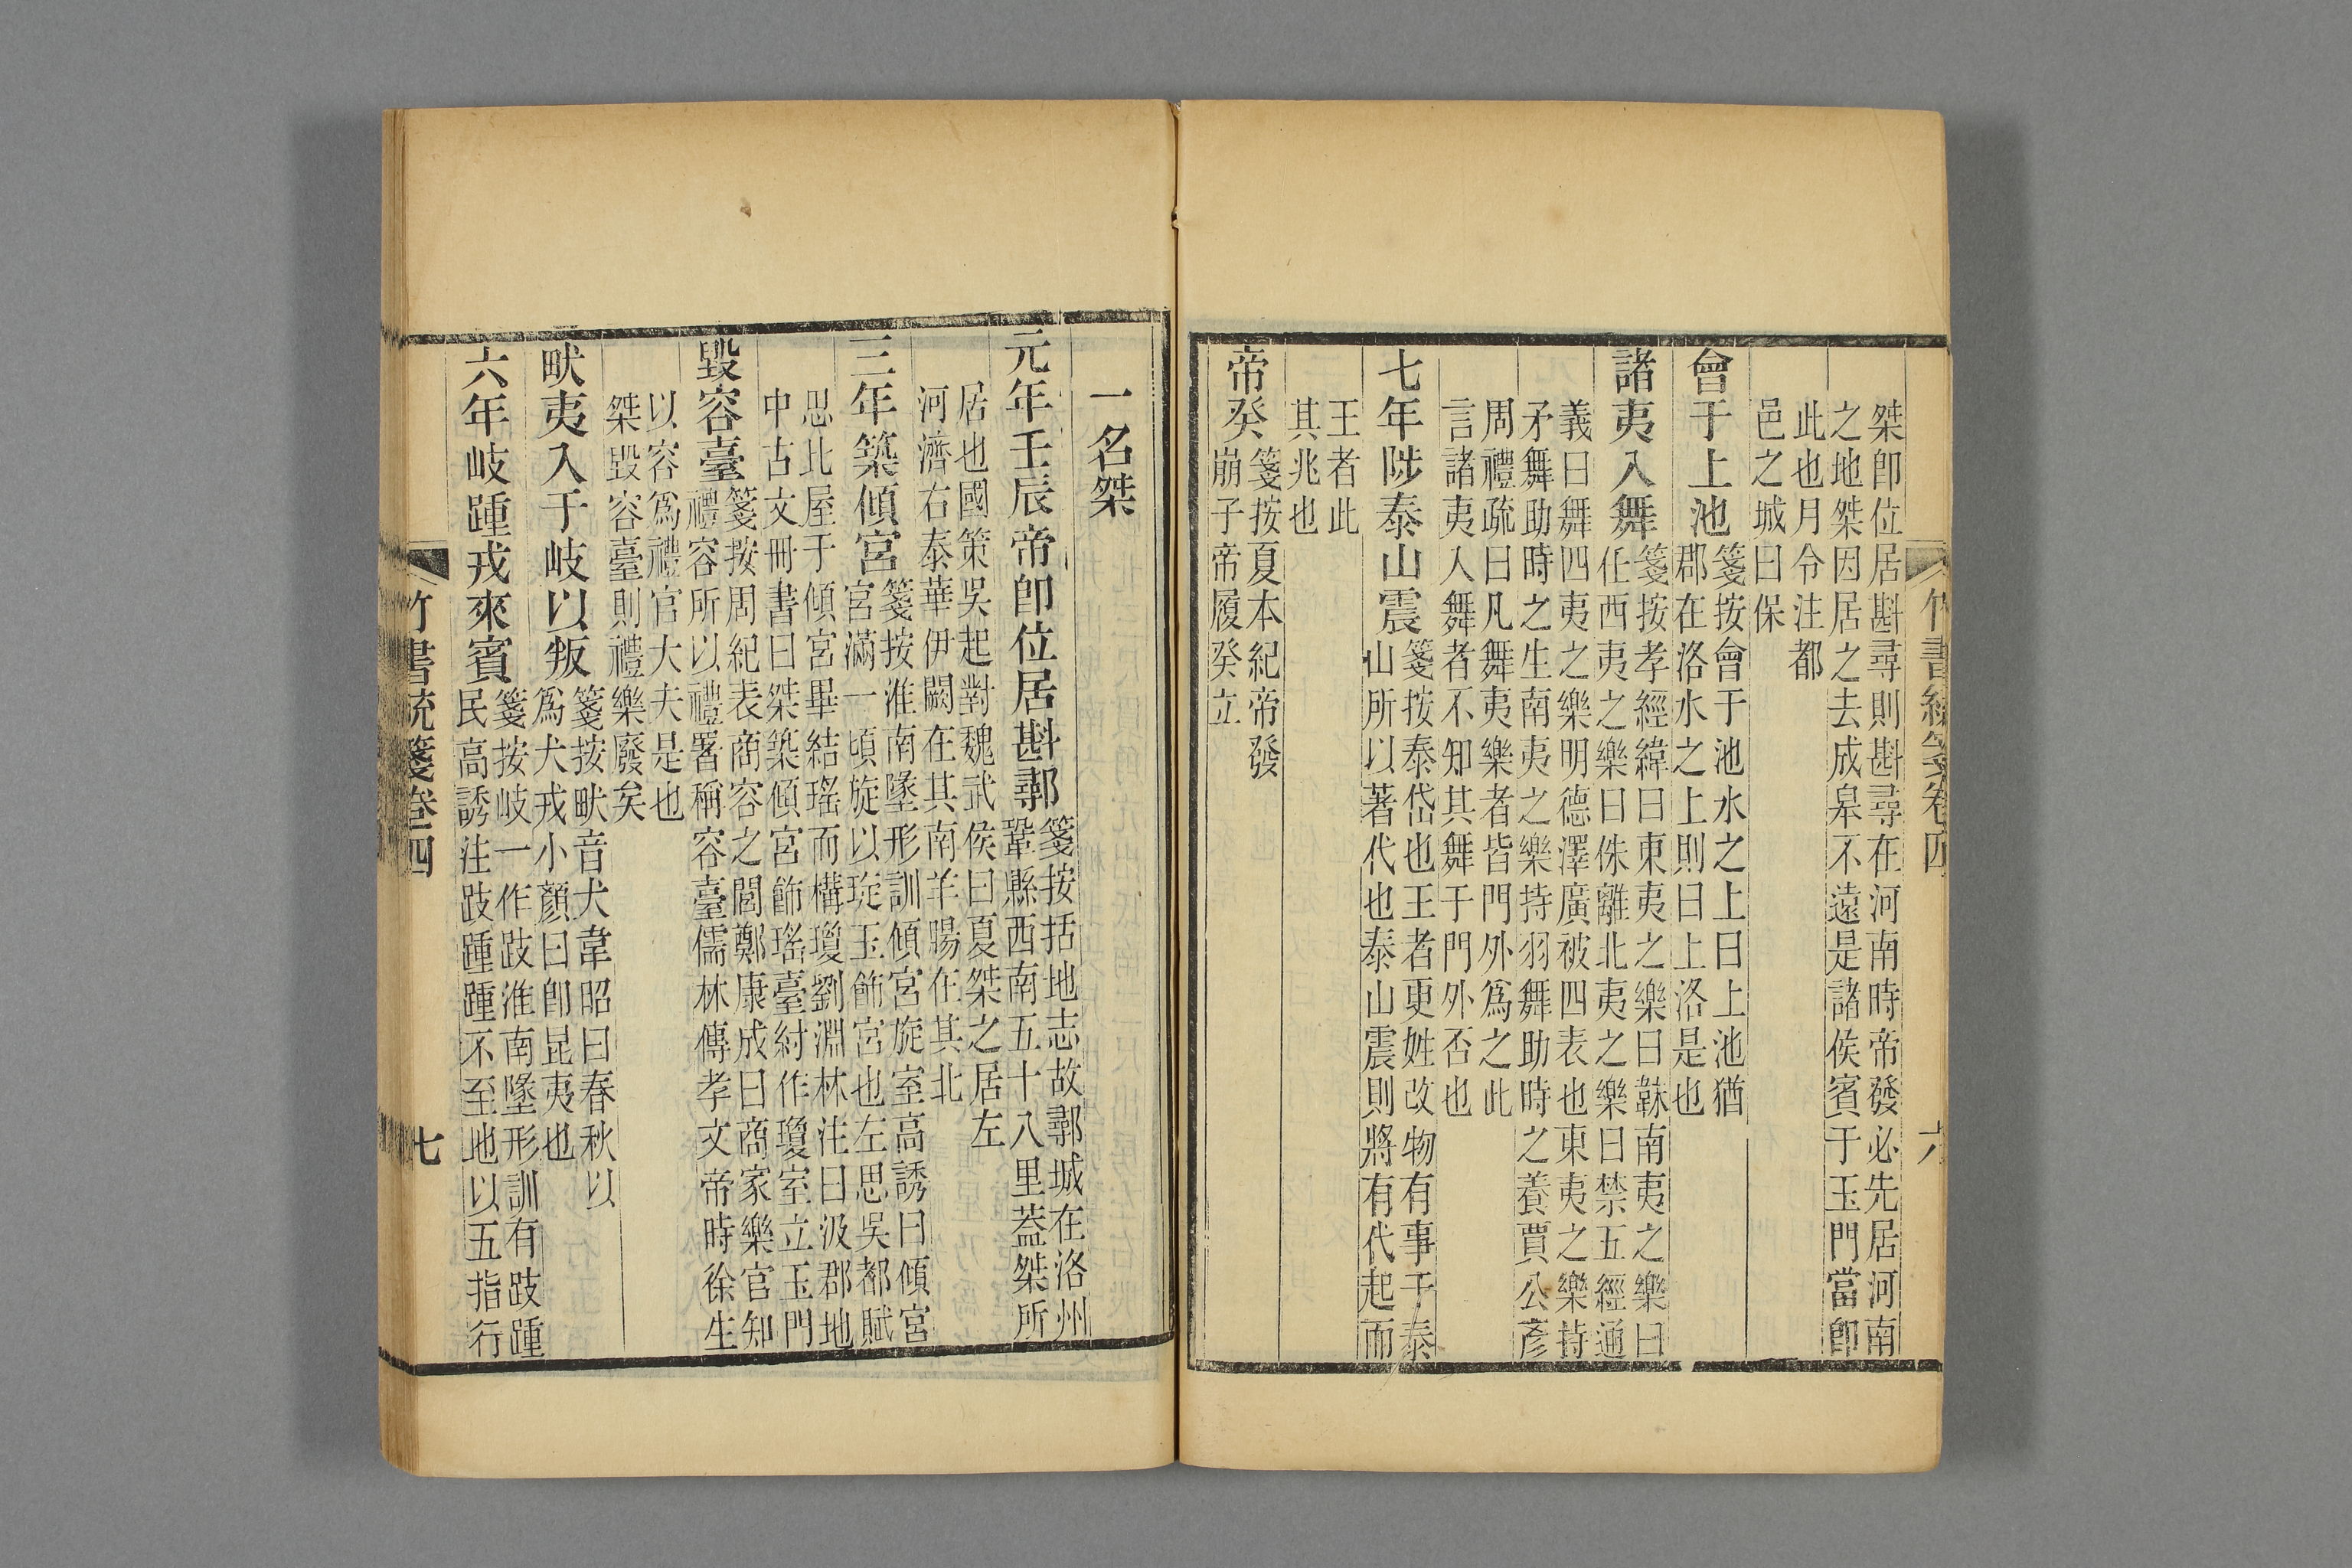 竹書統箋卷四
六
桀卽位居斟尋則斟尋在河南時帝發必先居河南
之地桀因居之去成皋不遠是諸侯賓于玉門當卽
此也月令注都
邑之城曰保
會于上池
箋按會于池水之上曰上池猶
郡在洛水之上則曰上洛是也
諸夷入舞
箋按孝經緯曰東夷之樂曰韎南夷之樂曰
任西夷之樂曰侏離北夷之樂曰禁五經通
義曰舞四夷之樂明德澤廣被四表也東夷之樂持
矛舞助時之生南夷之樂持羽舞助時之養賈公彥
周禮疏曰凡舞夷樂者皆門外爲之此
言諸夷入舞者不知其舞于門外否也
七年陟泰山震
箋按泰岱也王者更姓改物有事于泰
山所以著代也泰山震則將有代起而
王者此
其兆也
帝癸
箋按夏本紀帝發
崩子帝履癸立
一名桀
元年壬辰帝卽位居斟鄩
箋按括地志故鄩城在洛州
鞏縣西南五十八里葢桀所
居也國策吳起對魏武侯曰夏桀之居左
河濟右泰華伊闕在其南羊腸在其北
三年築傾宮
箋按淮南墬形訓傾宮旋室高誘曰傾宮
宮滿一頃旋以琁玉飾宮也左思吳都賦
思比屋于傾宮畢結瑤而構瓊劉淵林注曰汲郡地
中古文冊書曰桀築傾宮飾瑤臺紂作瓊室立玉門
毀容臺
箋按周紀表商容之閭鄭康成曰商家樂官知
禮容所以禮署稱容臺儒林傳孝文帝時徐生
以容爲禮官大夫是也
桀毀容臺則禮樂廢矣
畎夷入于岐以叛
箋按畎音犬韋昭曰春秋以
爲犬戎小顏曰卽昆夷也
六年岐踵戎來賓
箋按岐一作跂淮南墬形訓有跂踵
民高誘注跂踵踵不至地以五指行
竹書統箋卷四
七